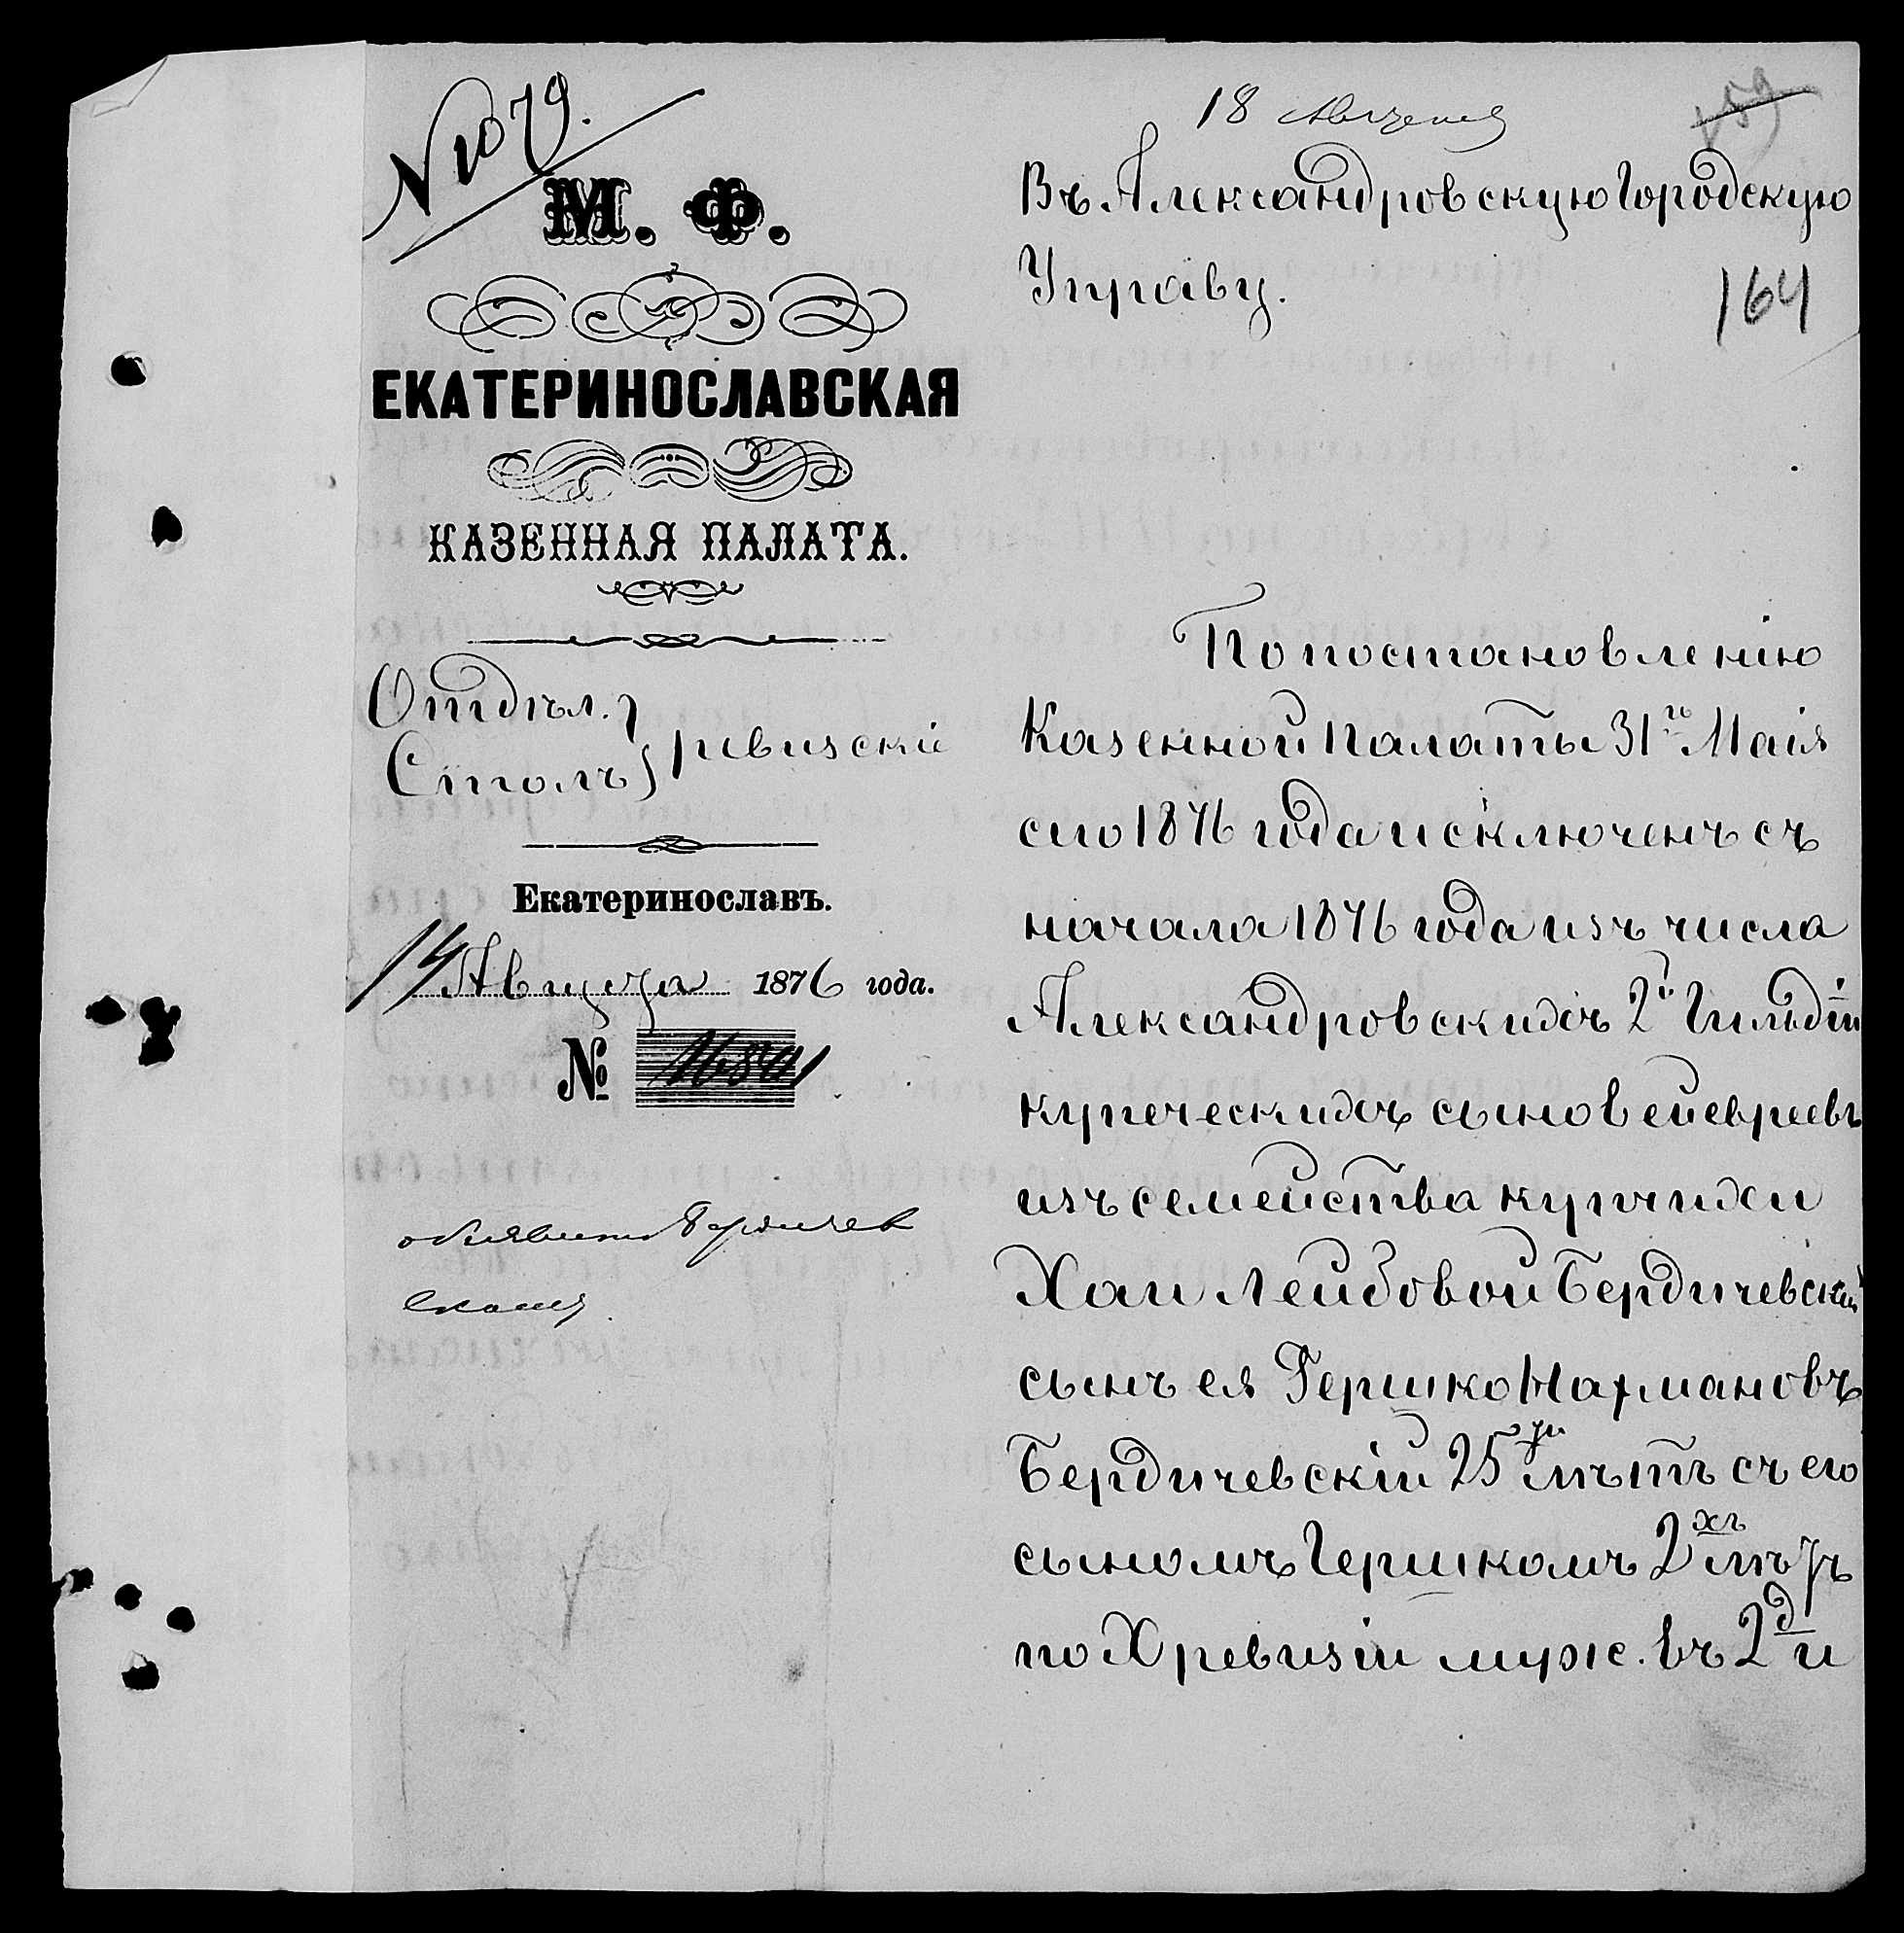 № 1079.
М. Ф.
ЕКАТЕРИНОСЛАВСКАЯ
КАЗЕННАЯ ПАЛАТА.
Отдѣл.
Столъ } ревизскій
Екатеринославъ.
14 Августа 1876 года.
№
объявить Бердичев
скому.
18 Августа
159
Въ Александровскую Городскую
Управу.
164
По постановленію
Казенной Палаты 31го Маія
сего 1876 года исключенъ съ
начала 1876 года изъ числа
Александровскихъ 2й Гильдіи
купеческихъ сыновей евреевъ
изъ семейства купчихи
Хаи Лейбовой Бердичевской
сынъ ея Гершко Нахмановъ
Бердичевскій 25ти лѣтъ съ его
сыномъ Гершкомъ 2хъ лѣтъ
по X ревизіи муж. въ 2д и